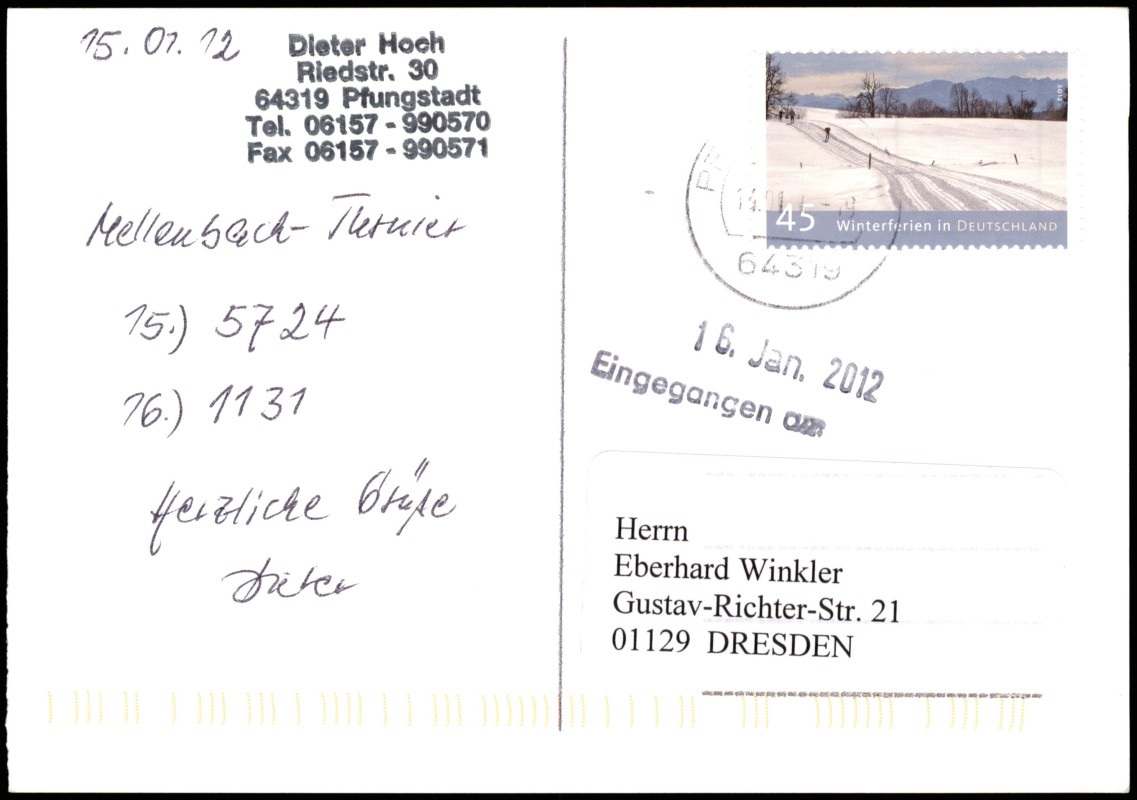 15.01.12
Dieter Hoch
Riedstr. 30
64319 Pfungstadt
Tel. 06157 - 990570
Fax 06157 - 990571
Mellenbach-Turnier
15.) 5724
16.) 1131
Herzliche Grüße
Dieter
2012
45 Winterferien in DEUTSCHLAND
64319
16. Jan. 2012
Eingegangen am
Herrn
Eberhard Winkler
Gustav-Richter-Str. 21
01129 DRESDEN